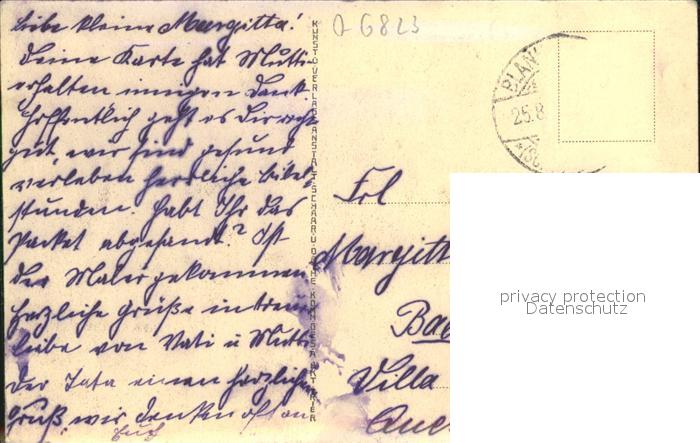 Liebe kleine Margitta!
Deine Karte hat Mutti
erhalten innigen Dank.
Hoffentlich geht es Dir recht
gut, wir sind gesund
verleben herrliche Bibel-
stunden. Habt Ihr das
Packet abgesandt? Ist
der Maler gekommen
herzliche Grüße in treuer
Liebe von Vati u Mutti
der Tata einen herzlichen
Gruß, wir denken oft an
Euch
KUNSTVERLAGSANSTALT SCHAAR U. DATHE KOMM.GES.A.AKT. TRIER
A 6823
BLAN
25.8
Frl
Margitt
Bad
Villa
privacy protection
Datenschutz